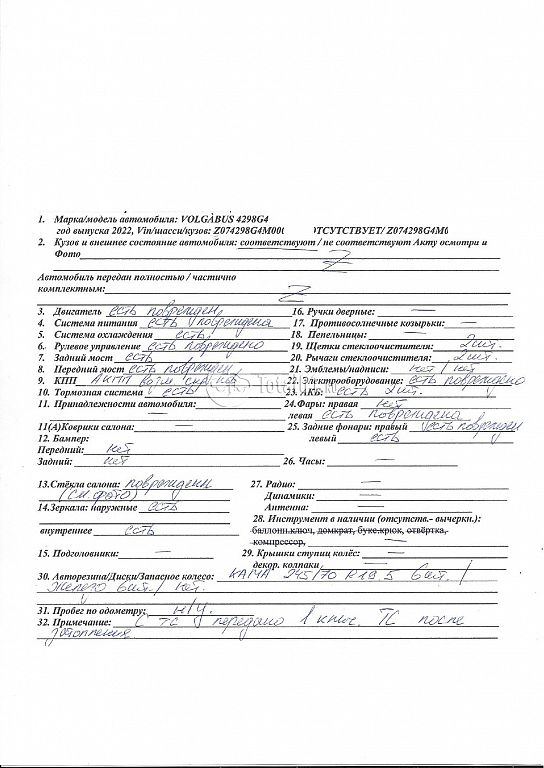 1. Марка/модель автомобиля: VOLGABUS 4298G4
год выпуска 2022, Vin/шасси/кузов: Z074298G4M00 ОТСУТСТВУЕТ/ Z074298G4M0
2. Кузов и внешнее состояние автомобиля: соответствуют / не соответствуют Акту осмотра и
Фото Z
Автомобиль передан полностью / частично
комплектным: Z
3. Двигатель есть поврежден
16. Ручки дверные: —
4. Система питания есть повреждена
17. Противосолнечные козырьки: —
5. Система охлаждения есть
18. Пепельницы: —
6. Рулевое управление есть повреждено
19. Щетки стеклоочистителя: 2шт.
7. Задний мост есть
20. Рычаги стеклоочистителя: 2шт.
8. Передний мост есть поврежден
21. Эмблемы/надписи: нет / нет
9. КПП АКПП
22. Электрооборудование: есть повреждено
10. Тормозная система есть
23. АКБ: есть 2шт.
11. Принадлежности автомобиля:
—
24. Фары: правая нет
левая есть повреждена
11(А)Коврики салона: —
25. Задние фонари: правый есть поврежден
12. Бампер:
левый есть
Передний: нет
Задний: нет
26. Часы: —
13.Стёкла салона: повреждены
(см. фото)
27. Радио: —
Динамики: —
14.Зеркала: наружные есть
Антенна: —
внутреннее есть
28. Инструмент в наличии (отсутств.- вычеркн.):
баллонн.ключ, домкрат, букс.крюк, отвёртка,
компрессор, —
15. Подголовники: —
29. Крышки ступиц колёс: —
декор. колпаки —
30. Авторезина/Диски/Запасное колесо: КАМА 245/70 R 19.5 6шт. /
железо 6шт. / нет.
31. Пробег по одометру: н/у.
32. Примечание: С ТС передано 1 ключ. ТС после
затопления